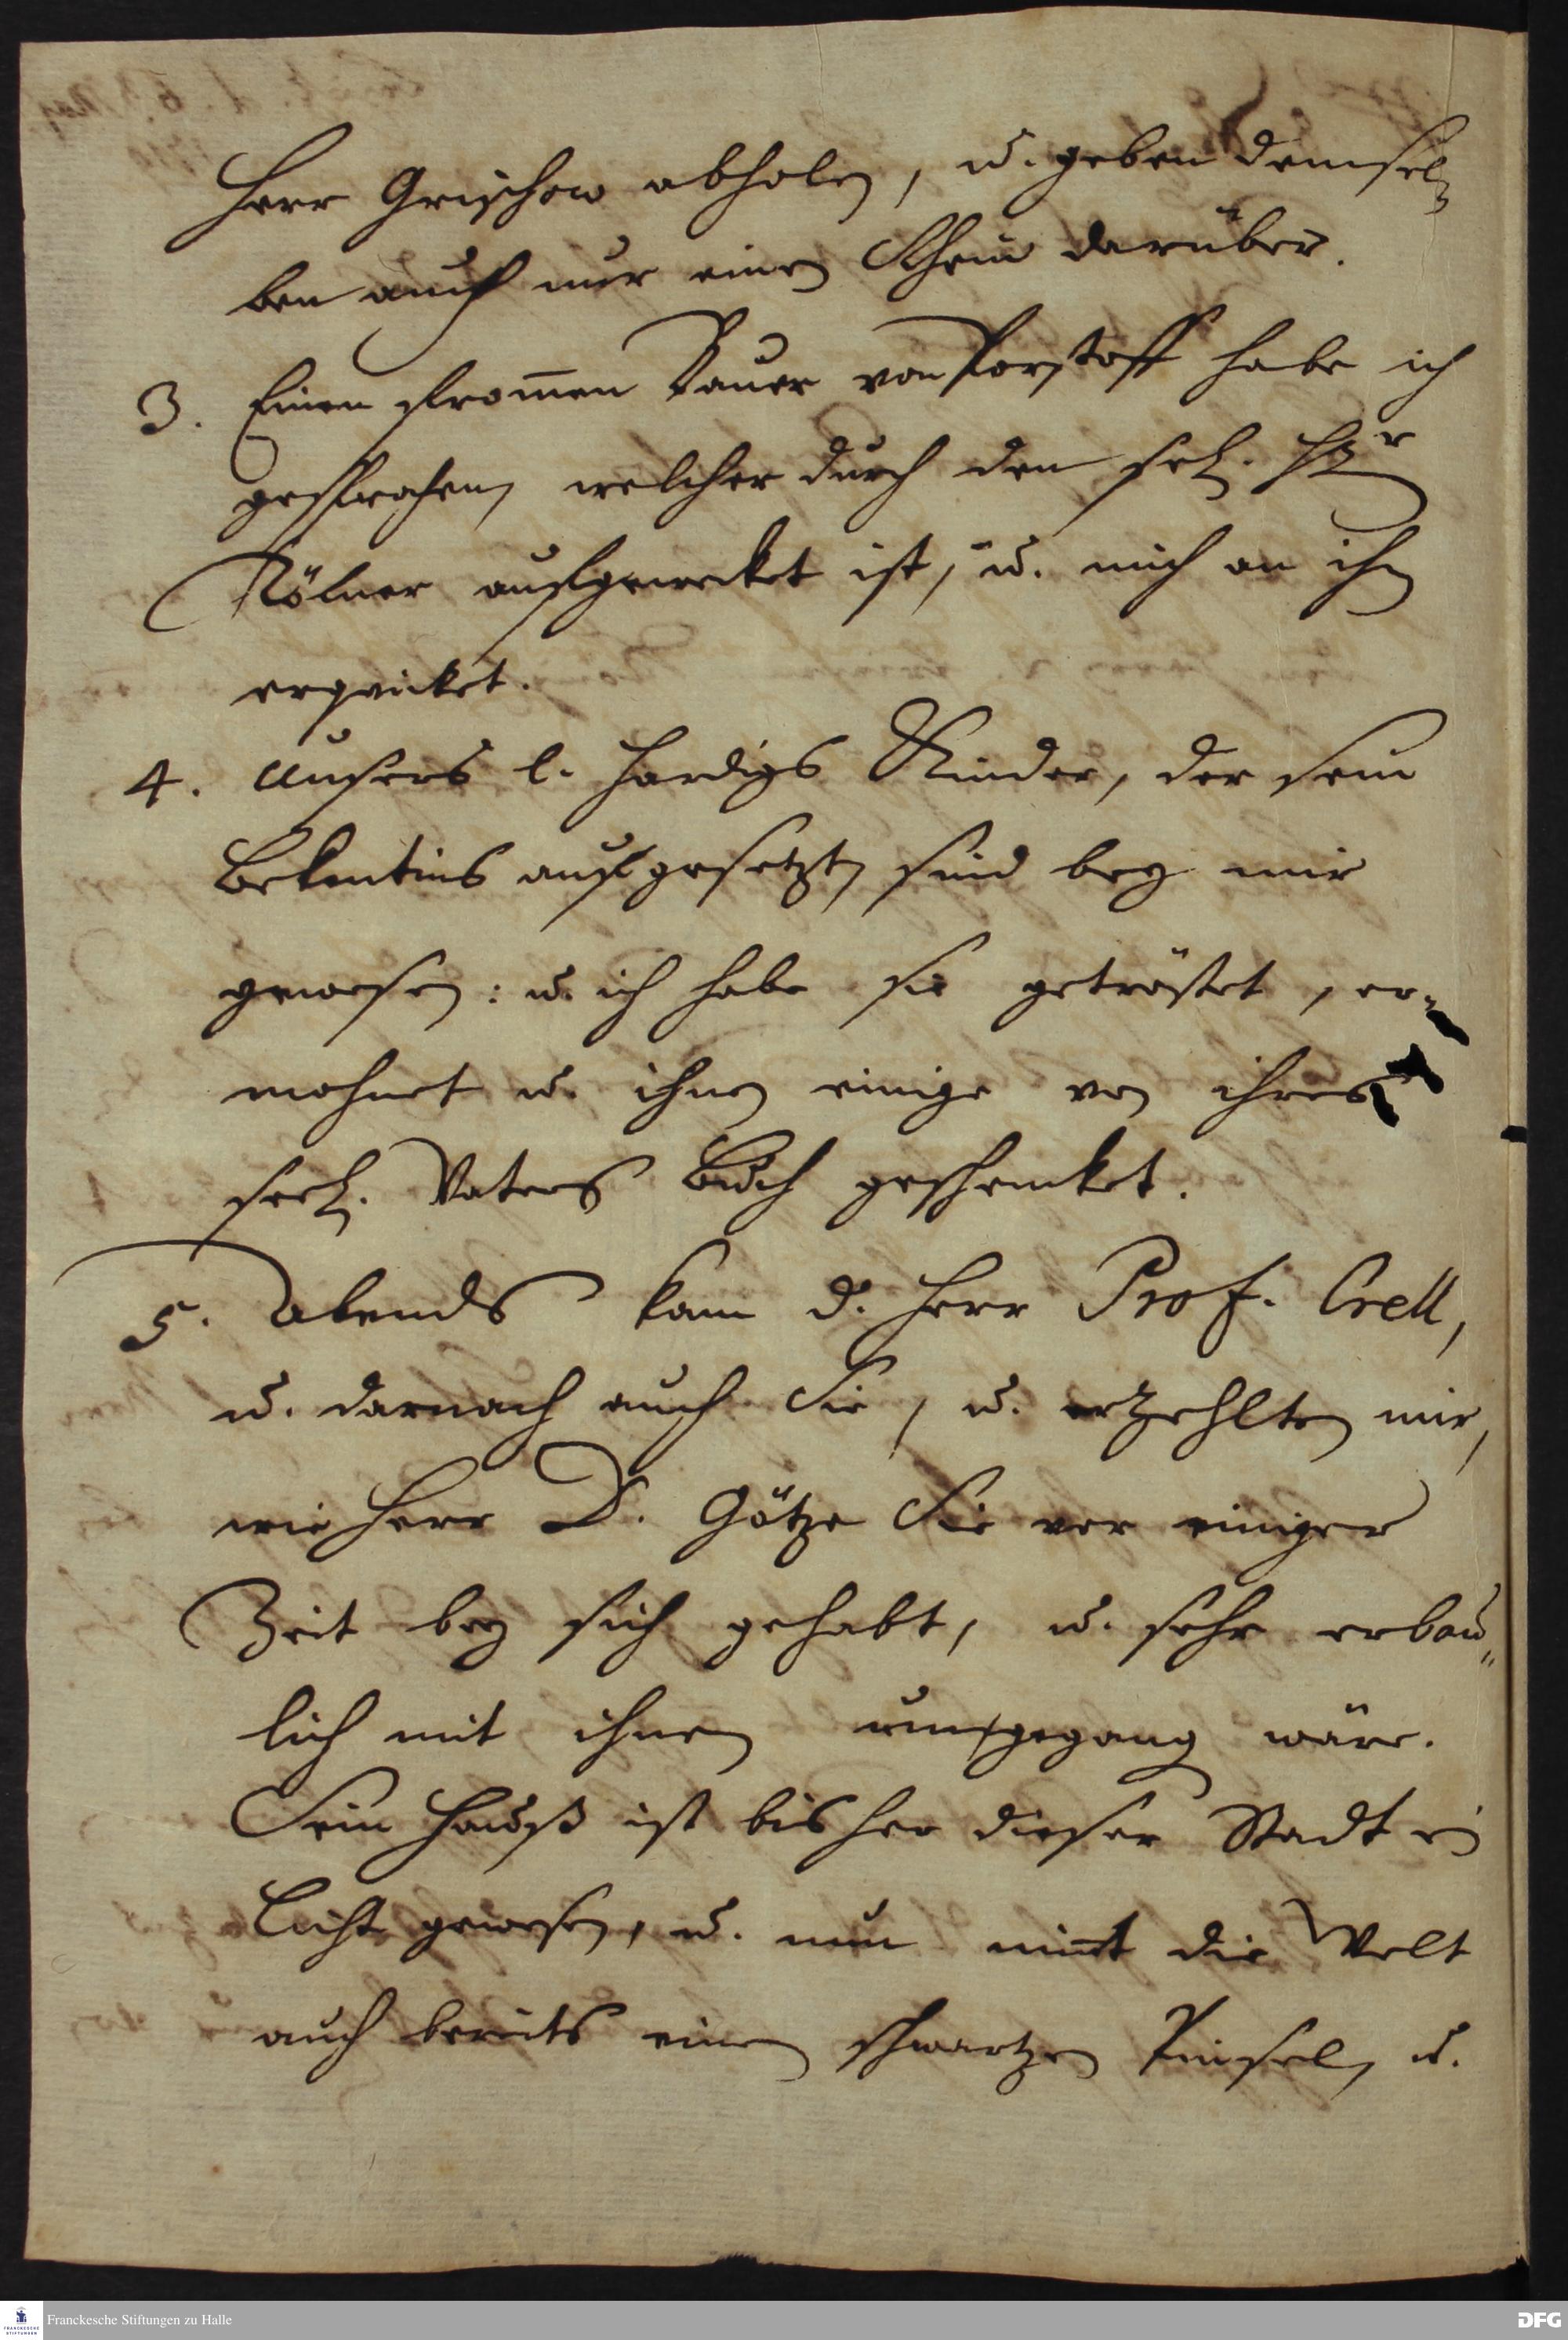 Herr Grischow abholen, u. geben demsel-
ben auch nur einen Schein darüber.
3. Einen frommen Bauer von Porstorff habe ich
gesprochen, welcher durch den sel. Hr
Kölner aufgewecket ist, u. mich an ihm
erqvicket.
4. Unsers l. Hardigs Kinder, der sein
Bekentnis aufgesetzt, sind bey mir
gewesen: u. ich habe sie getröstet, er-
mahnet u. ihnen einige von ihres
seel. Vaters Buch geschencket.
5. Abends kam d. Herr Prof. Crell,
u. darnach auch Sie, u. erzehlten mir,
wie Herr D. Götze Sie vor einiger
Zeit bey sich gehabt, u. sehr erbau-
lich mit ihnen umgegang wäre.
Sein Hauß ist bisher dieser Stadt ein
Licht gewesen, u. nun nimt die Welt
auch bereits einen schwartzen Pinsel, u.
Franckesche Stiftungen zu Halle
DFG